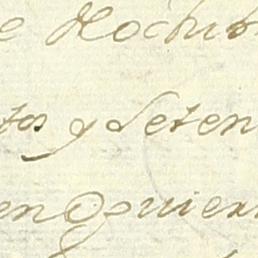 e Hochi
tos y Seten
en Quier